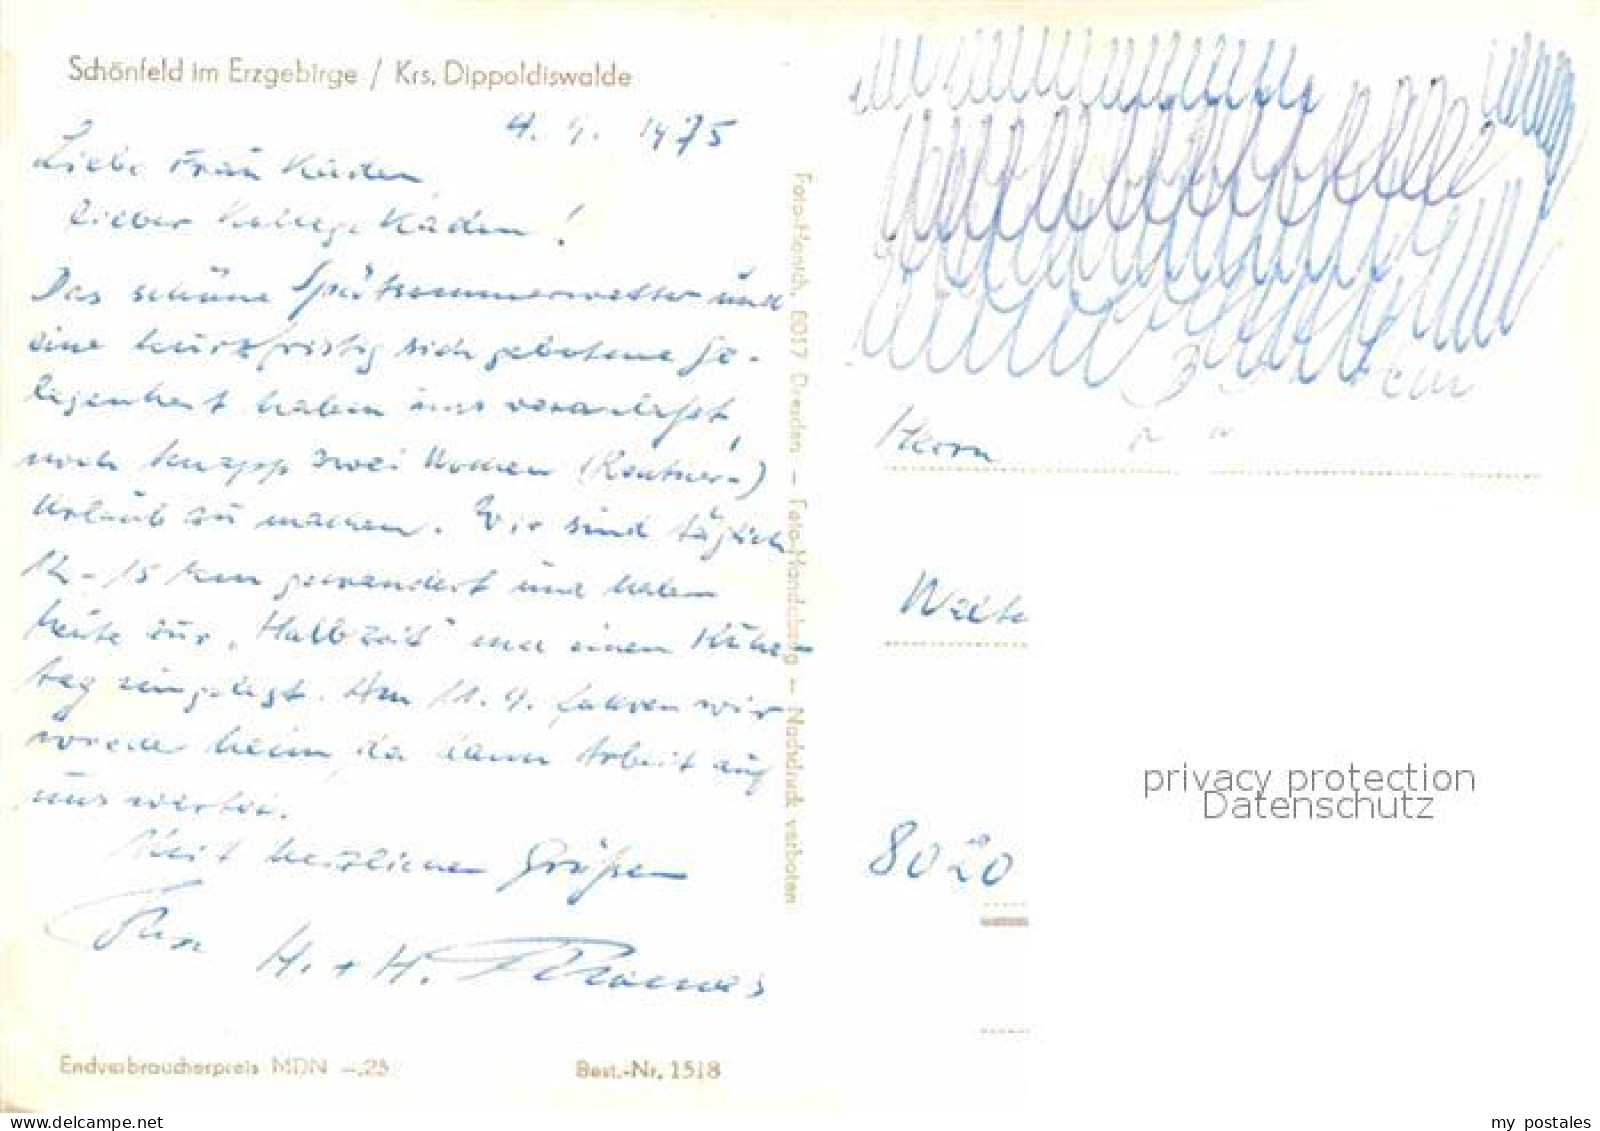 Schönfeld im Erzgebirge / Krs. Dippoldiswalde
4. 9. 1975
Liebe Frau Kaden,
lieber Kollege Kaden!
Das schöne Spätsommerwetter und
eine kurzfristig sich gebotene Ge-
legenheit haben uns veranlaßt,
noch knapp zwei Wochen (Rentner-)
Urlaub zu machen. Wir sind täglich
12-15 km gewandert und haben
heute zur "Halbzeit" mal einen Ruhe-
tag eingelegt. Am 11.9. fahren wir
wieder heim, da dann Arbeit auf
uns wartet.
Mit herzlichen Grüßen
H. + H.
Endverbraucherpreis MDN -,25
Best.-Nr. 1518
Foto-Hanich, 8017 Dresden - Foto-Handabzug - Nachdruck verboten
Herrn
8020
privacy protection
Datenschutz
delcampe.net
my postales